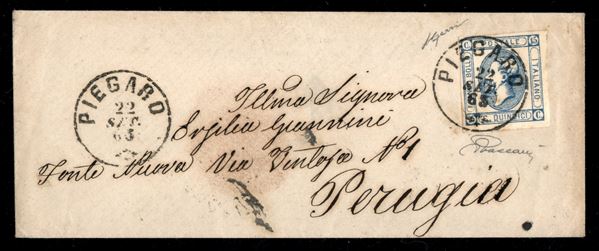 PIEGARO
22
SET.
63
PIEGARO
22
SET.
63
C. 15
POSTALE
ITALIANO
BOLLO
QUINDICI C.
Illma Signora
Ersilia Giannini
Fonte Nuova Via Pintoja No 1
Perugia